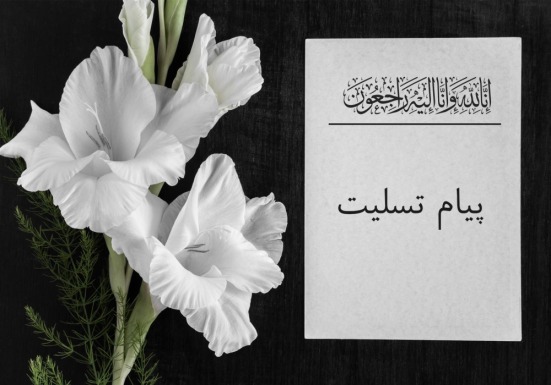 إنا لله وإنا إليه راجعون
پیام تسلیت